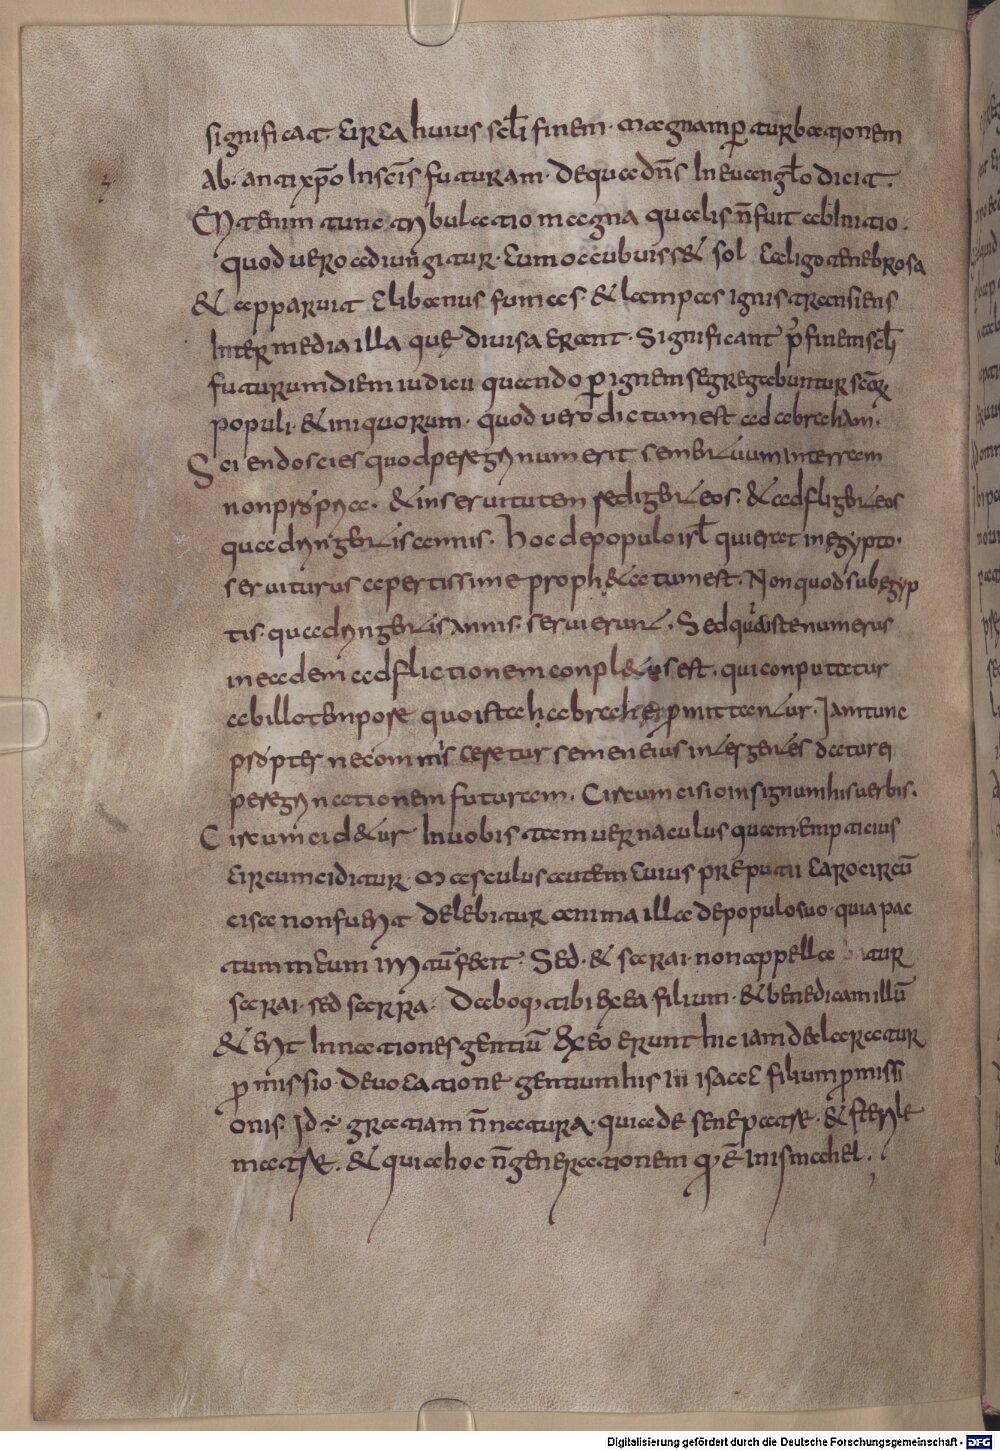 significat. circa huius scƚi finem. magnam ꝑturbationem
ab. antixp̄o In sc̄is futuram. De qua dn̄s In euangƚo dicit.
Erit enim tunc tribulatio magna qualis n̄ fuit ab Initio.
quod uero adiungitur. cum occubuiss& sol caligo tenebrosa
& apparuit clibanus fumas. & lampas ignis transiens
Inter media illa quę diuisa erant. Significant p̄ finem scƚi
futurum diem iudicii quando ꝑ ignem segregabuntur scōꝝ
populi. & iniquorum. quod uero dictum est ad abraham.
Sciendo scies quod peregrinum erit semen tuum in terram
non propria. & in seruitutem redigent eos. & adfligent eos
quadringentis annis. Hoc de populo isrƚ qui erat in egypto.
seruiturus apertissime proph&atum est. Non quod sub egyp
tis. quadringentis annis. seruierunt. Sed quod iste numerus
in eadem adflictionem conpl&us est. qui conputatur
ab illo tenpore quo ista habrahę ꝓmittantur. Iam tunc
propter necommis aretur semen eius inter gentes datur ei
peregrinationem futuram. Circumcisio in signum his uerbis.
Circumcid&ur In uobis tam uernaculus quam empticius
circumciditur. Masculus autem cuius preputii caro circū
cisa non fuerit delebitur anima illa de populo suo. quia pac
tum meum irritū fecit. Sed. & sarai. non appella bitur
sarai. sed sarra. Dabo qꝫ tibi ex ea filium. & benedicam illū
& erit In nationes gentiū & ex eo erunt hic iam declaratur
ꝓmissio. De uocatione gentium his in isaac filium ꝓmissi
onis. Id ÷ gratiam n̄ natura. quia de sene patre. & sterile
matre. & quia hoc n̄ generationem qđ ē In ismahel.
Digitalisierung gefördert durch die Deutsche Forschungsgemeinschaft - DFG